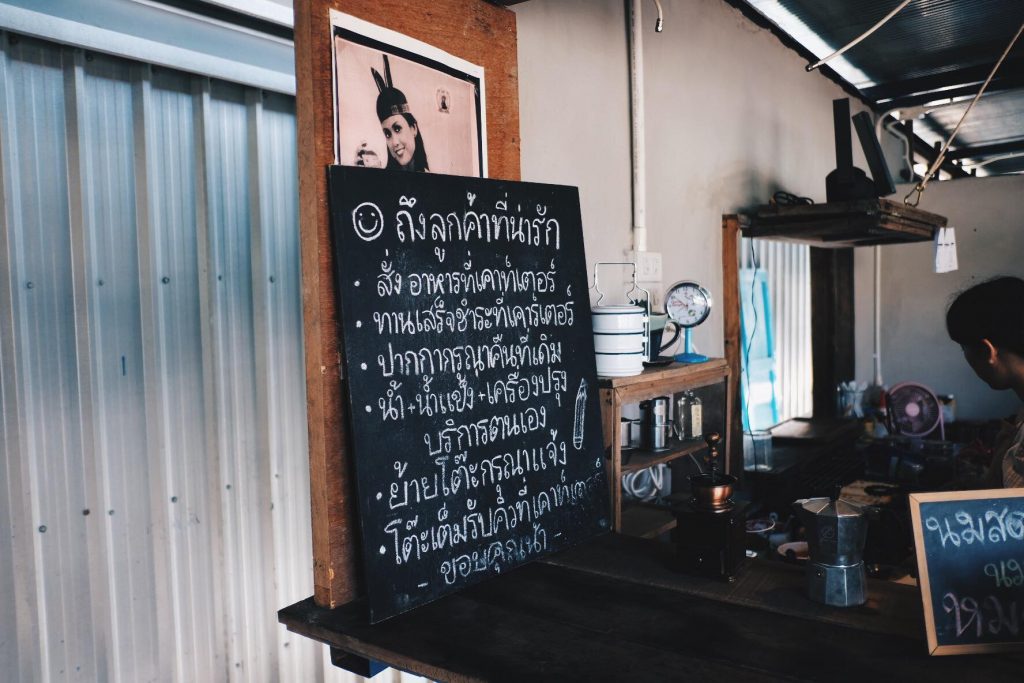 ถึงลูกค้าที่น่ารัก
· สั่งอาหารที่เคาท์เตอร์
· ทานเสร็จชำระที่เคาร์เตอร์
· ปากกากรุณาคืนที่เดิม
· น้ำ+น้ำแข็ง+เครื่องปรุง
บริการตนเอง
· ย้ายโต๊ะกรุณาแจ้ง
· โต๊ะเต็มรับคิวที่เคาท์เตอร์
- ขอบคุณน้า -
นมสด
นม